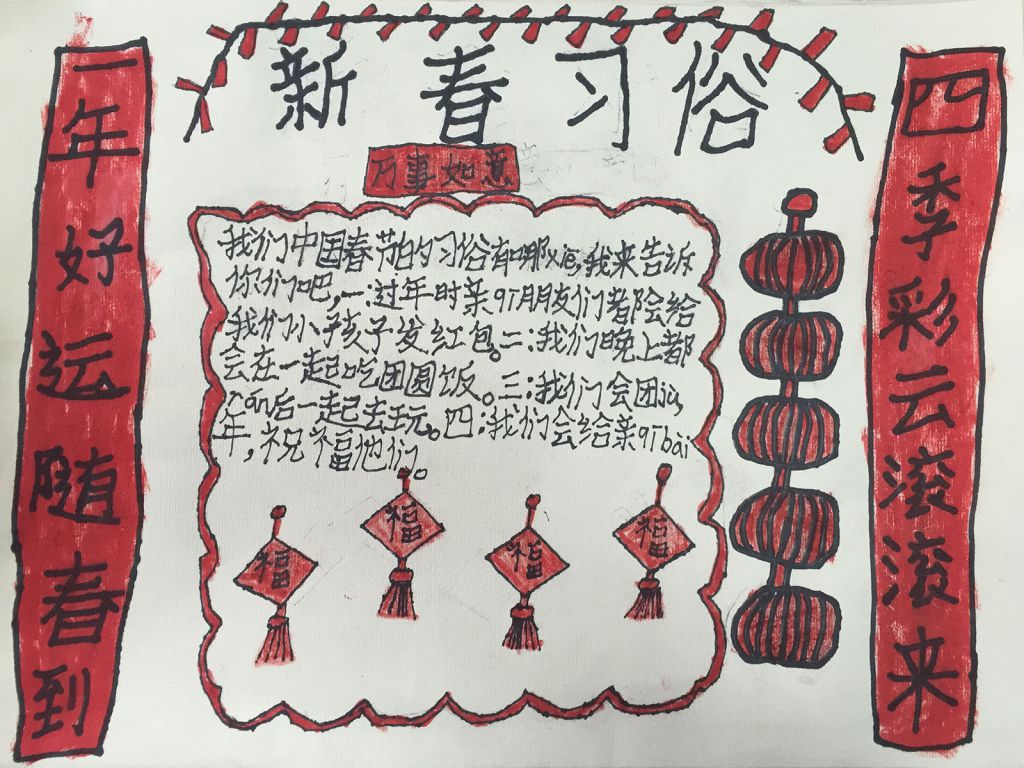 新春习俗
万事如意
一年好运随春到
我们中国春节的习俗有哪xie,我来告诉
你们吧,一:过年时亲qi朋友们都会给
我们小孩子发红包。二:我们晚上都
会在一起吃团圆饭。三:我们会团ju,
ran后一起去玩。四:我们会给亲qi bai
年,祝福他们。
福
福
福
福
四季彩云滚滚来